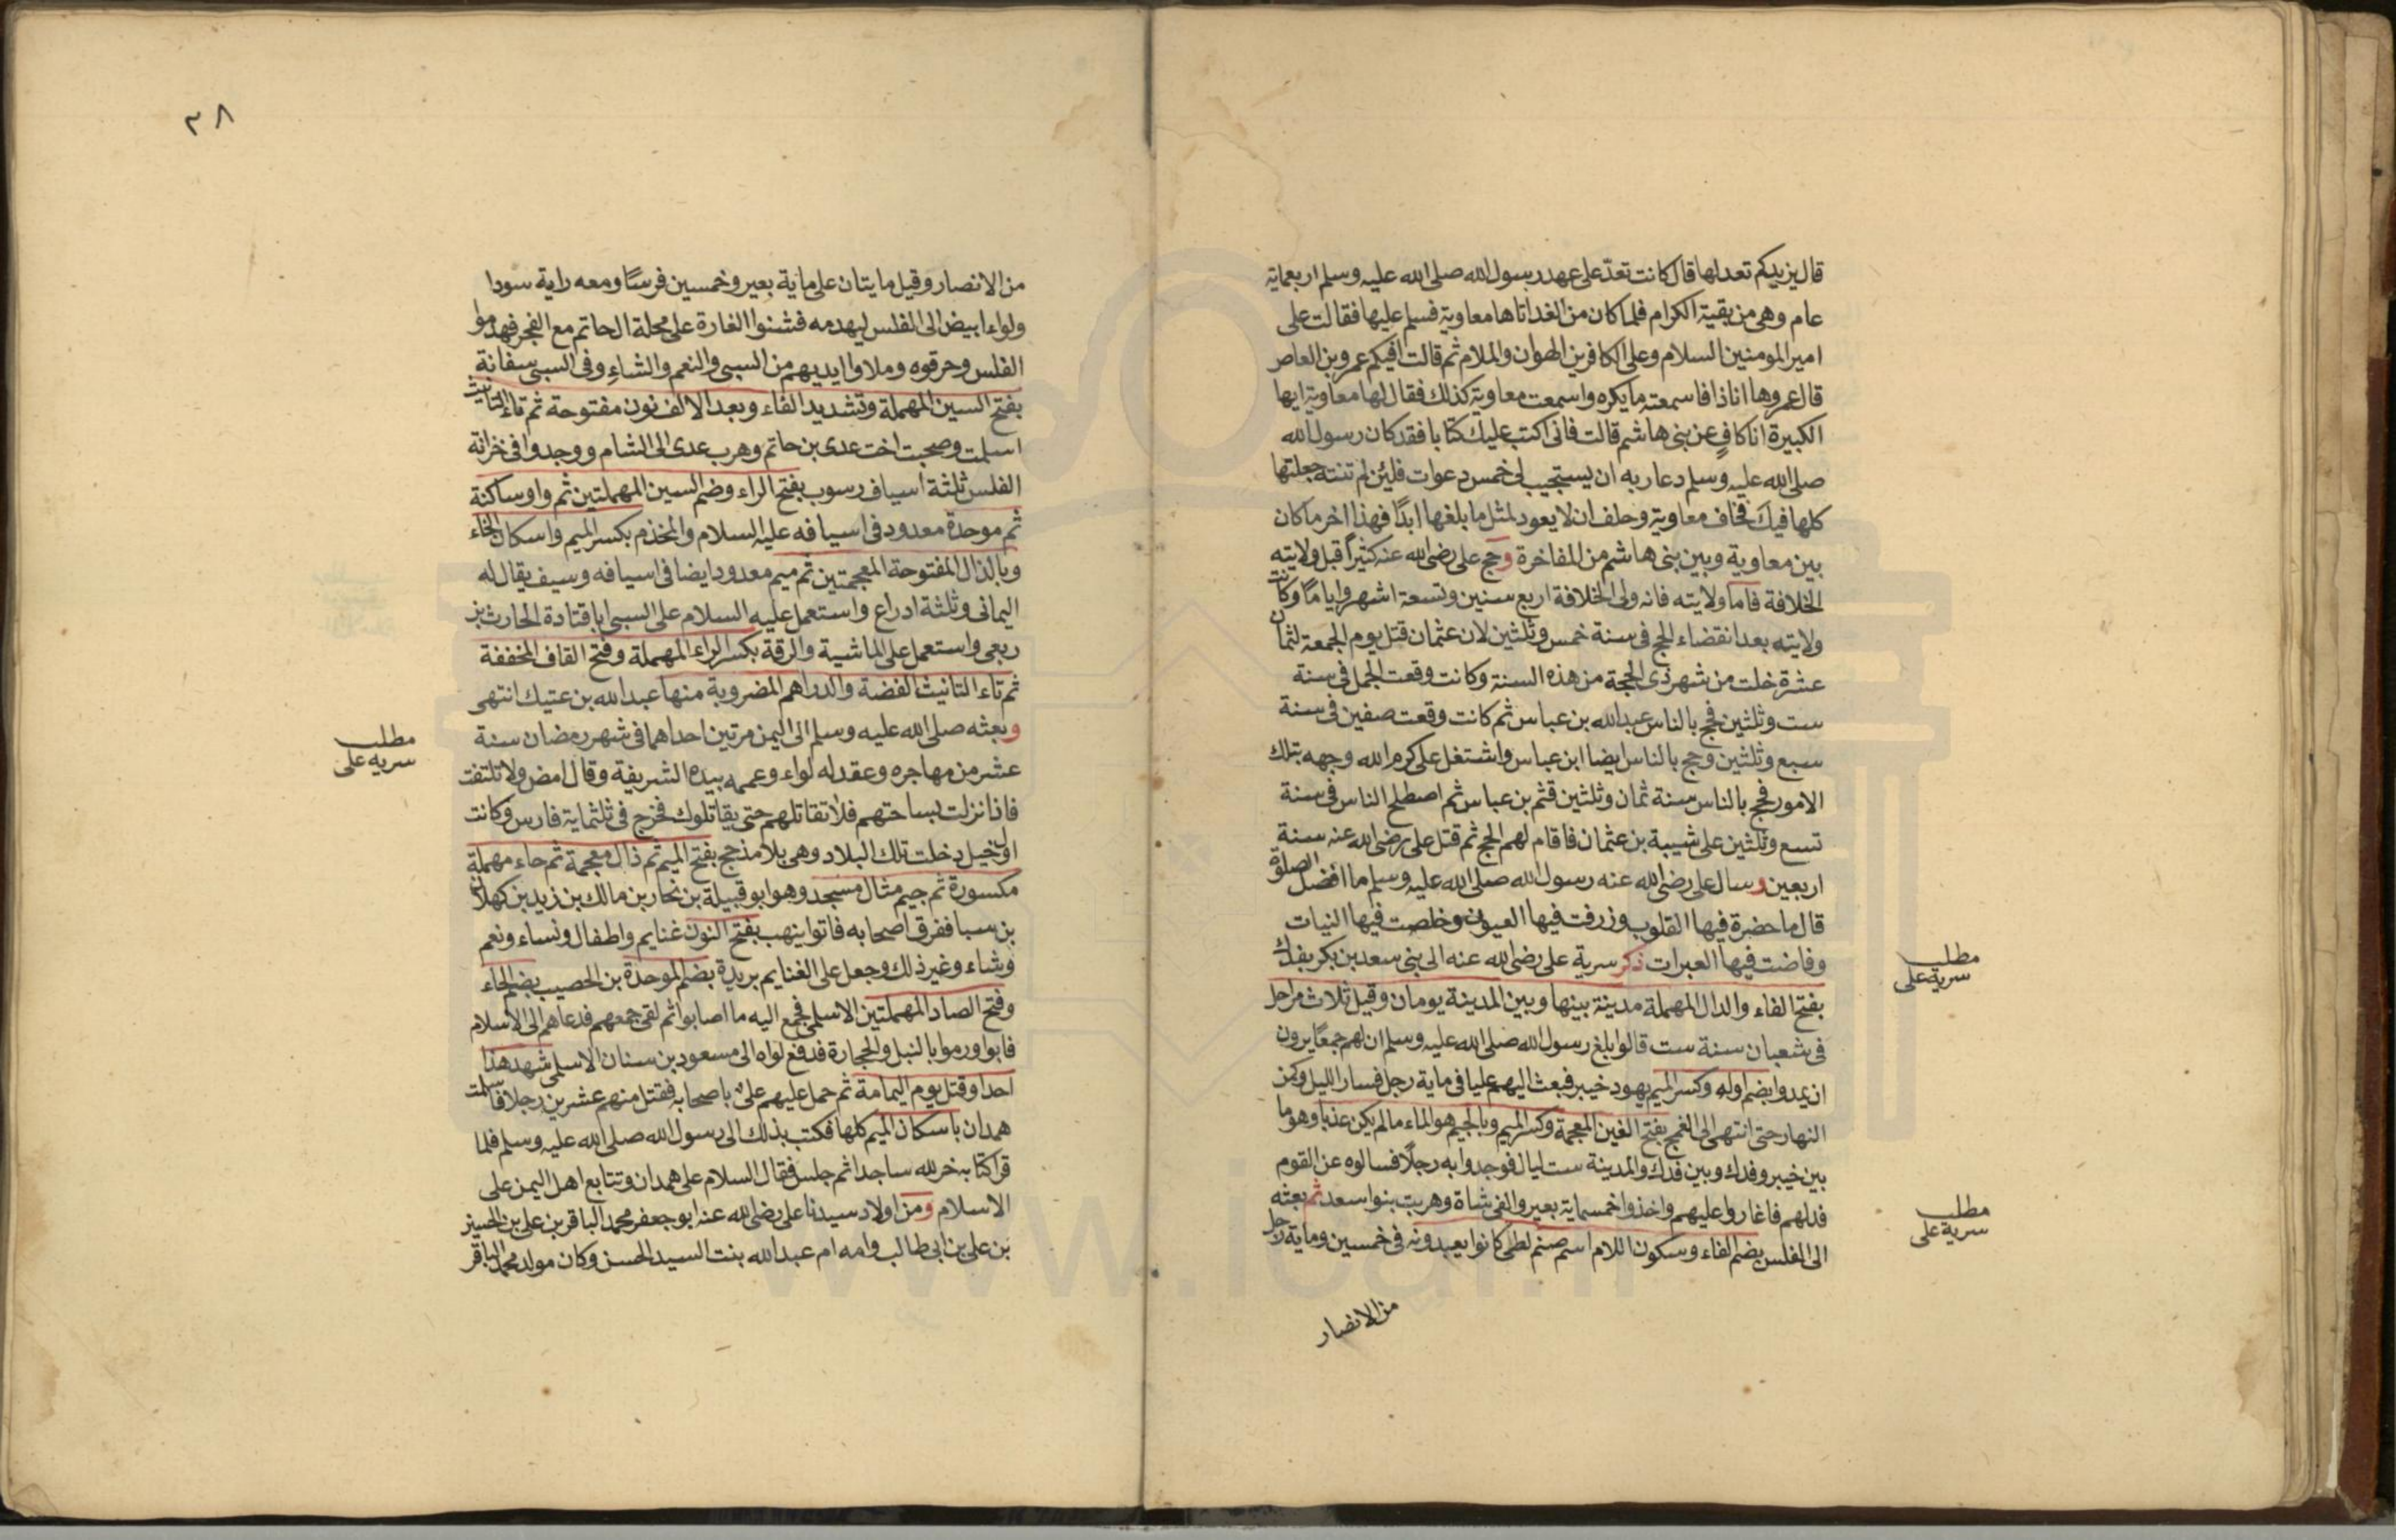 قال يزيدكم تعدلها قال كانت تعدّ على عهد رسول الله صلى الله عليه وسلم اربعماية
عام وهى من بقية الكرام فلما كان من الغد اتاها معاوية فسلم عليها فقالت على
امير المومنين السلام وعلى الكافرين الهوان والملام ثم قالت افيكم عمرو بن العاص
قال عمرو ها انا ذا فاسمعته ما يكره واسمعت معاوية كذلك فقال لها معاوية ايها
الكبيرة انا كافٍ عن بنى هاشم قالت فانى اكتب عليك كتابا فقد كان رسول الله
صلى الله عليه وسلم دعا ربه ان يستجيب لى خمس دعوات فلئن لم تنته جعلتها
كلها فيك فخاف معاوية وحلف ان لا يعود لمثل ما بلغها ابدًا فهذا اخر ما كان
بين معاوية وبين بنى هاشم من المفاخرة وحج على رضى الله عنه كثيراً قبل ولايته
الخلافة فاما ولايته فانه ولى الخلافة اربع سنين وتسعة اشهر واياماً وكانت
ولايته بعد انقضاء الحج فى سنة خمس وثلثين لان عثمان قتل يوم الجمعة لثمان
عشرة خلت من شهر ذى الحجة من هذه السنة وكانت وقعت الجمل فى سنة
ست وثلثين فحج بالناس عبد الله بن عباس ثم كانت وقعت صفين فى سنة
سبع وثلثين وحج بالناس ايضا ابن عباس واشتغل على كرم الله وجهه بتلك
الامور فحج بالناس سنة ثمان وثلثين قثم بن عباس ثم اصطلح الناس فى سنة
تسع وثلثين على شيبة بن عثمان فاقام لهم الحج ثم قتل على رضى الله عنه سنة
اربعين وسال على رضى الله عنه رسول الله صلى الله عليه وسلم ما افضل الصلوة
قال ما حضرة فيها القلوب وزرفت فيها العيون وخلصت فيها النيات
وفاضت فيها العبرات ذكر سرية على رضى الله عنه الى بنى سعد بن بكر بفدك
مطلب
سرية على
بفتح الفاء والدال المهملة مدينة بينها وبين المدينة يومان وقيل ثلاث مراحل
فى شعبان سنة ست قالوا بلغ رسول الله صلى الله عليه وسلم ان لهم جمعًا يرون
ان يمدوا بضم اوله وكسر الميم يهود خيبر فبعث اليهم عليا فى ماية رجل فسار الليل وكمن
النهار حتى انتهى الى الغمج بفتح الغين المعجمة وكسر الميم وبالجيم هو الماء ما لم يكن عذبا وهو ما
بين خيبر وفدك وبين فدك والمدينة ست ليال فوجدوا به رجلًا فسالوه عن القوم
فدلهم فاغاروا عليهم واخذوا خمسماية بعير والفى شاة وهربت بنوا سعد ثم بعثه
مطلب
سرية على
الى الفلس بضم الفاء وسكون اللام اسم صنم لطى كانوا يعبدونه فى خمسين وماية رجل
من الانصار
٣٨
من الانصار وقيل مايتان على ماية بعير وخمسين فرسًا ومعه راية سودا
ولواء ابيض الى الفلس ليهدمه فشنوا الغارة على محلة ال حاتم مع الفجر فهدموا
الفلس وحرقوه وملاوا ايديهم من السبى والنعم والشاءِ وفى السبى سفانة
بفتح السين المهملة وتشديد الفاء وبعد الالف نون مفتوحة ثم تاء التانيث
اسلمت وصحبت اخت عدى بن حاتم وهرب عدى الى الشام ووجدوا فى خزانة
الفلس ثلثة اسياف رسوب بفتح الراء وضم السين المهملتين ثم واو ساكنة
ثم موحدة معدود فى اسيافه عليه السلام والمخذم بكسر الميم واسكان الخاء
وبالذال المفتوحة المعجمتين ثم ميم معدود ايضا فى اسيافه وسيف يقال له
اليمانى وثلثة ادراع واستعمل عليه السلام على السبى ابا قتادة الحارث بن
ربعى واستعمل على الماشية والرقة بكسر الراء المهملة وفتح القاف المخففة
ثم تاء التانيث الفضة والدراهم المضروبة منها عبد الله بن عتيك انتهى
وبعثه صلى الله عليه وسلم الى اليمن مرتين احداهما فى شهر رمضان سنة
مطلب
سريه على
عشر من مهاجره وعقد له لواء وعممه بيده الشريفة وقال امض ولا تلتفت
فاذا نزلت بساحتهم فلا تقاتلهم حتى يقاتلوك فخرج فى ثلثماية فارس وكانت
اول خيل دخلت تلك البلاد وهى بلاد مذحج بفتح الميم ثم ذال معجمة ثم حاء مهملة
مكسورة ثم جيم مثال مسجد وهو ابو قبيلة بن نحار بن مالك بن زيد بن كهلان
بن سبا ففرق اصحابه فاتوا بنهب بفتح النون غنايم واطفال ونساء ونعم
وشاء وغير ذلك وجعل على الغنايم بريدة بضم الموحدة بن الحصيب بضم الحاء
وفتح الصاد المهملتين الاسلمى فجمع اليه ما اصابوا ثم لقى جمعهم فدعاهم الى الاسلام
فابوا ورموا بالنبل والحجارة فدفع لواه الى مسعود بن سنان الاسلمى شهد هذا
احدا وقتل يوم اليمامة ثم حمل عليهم على باصحابه فقتل منهم عشرين رجلا فاسلمت
همدان باسكان الميم كلها فكتب بذلك الى رسول الله صلى الله عليه وسلم فلما
قرا كتابه خر لله ساجدا ثم جلس فقال السلام على همدان وتتابع اهل اليمن على
الاسلام ومن اولاد سيدنا على رضى الله عنه ابو جعفر محمد الباقر بن على بن الحسين
بن على بن ابى طالب وامه ام عبد الله بنت السيد الحسن وكان مولد محمد الباقر